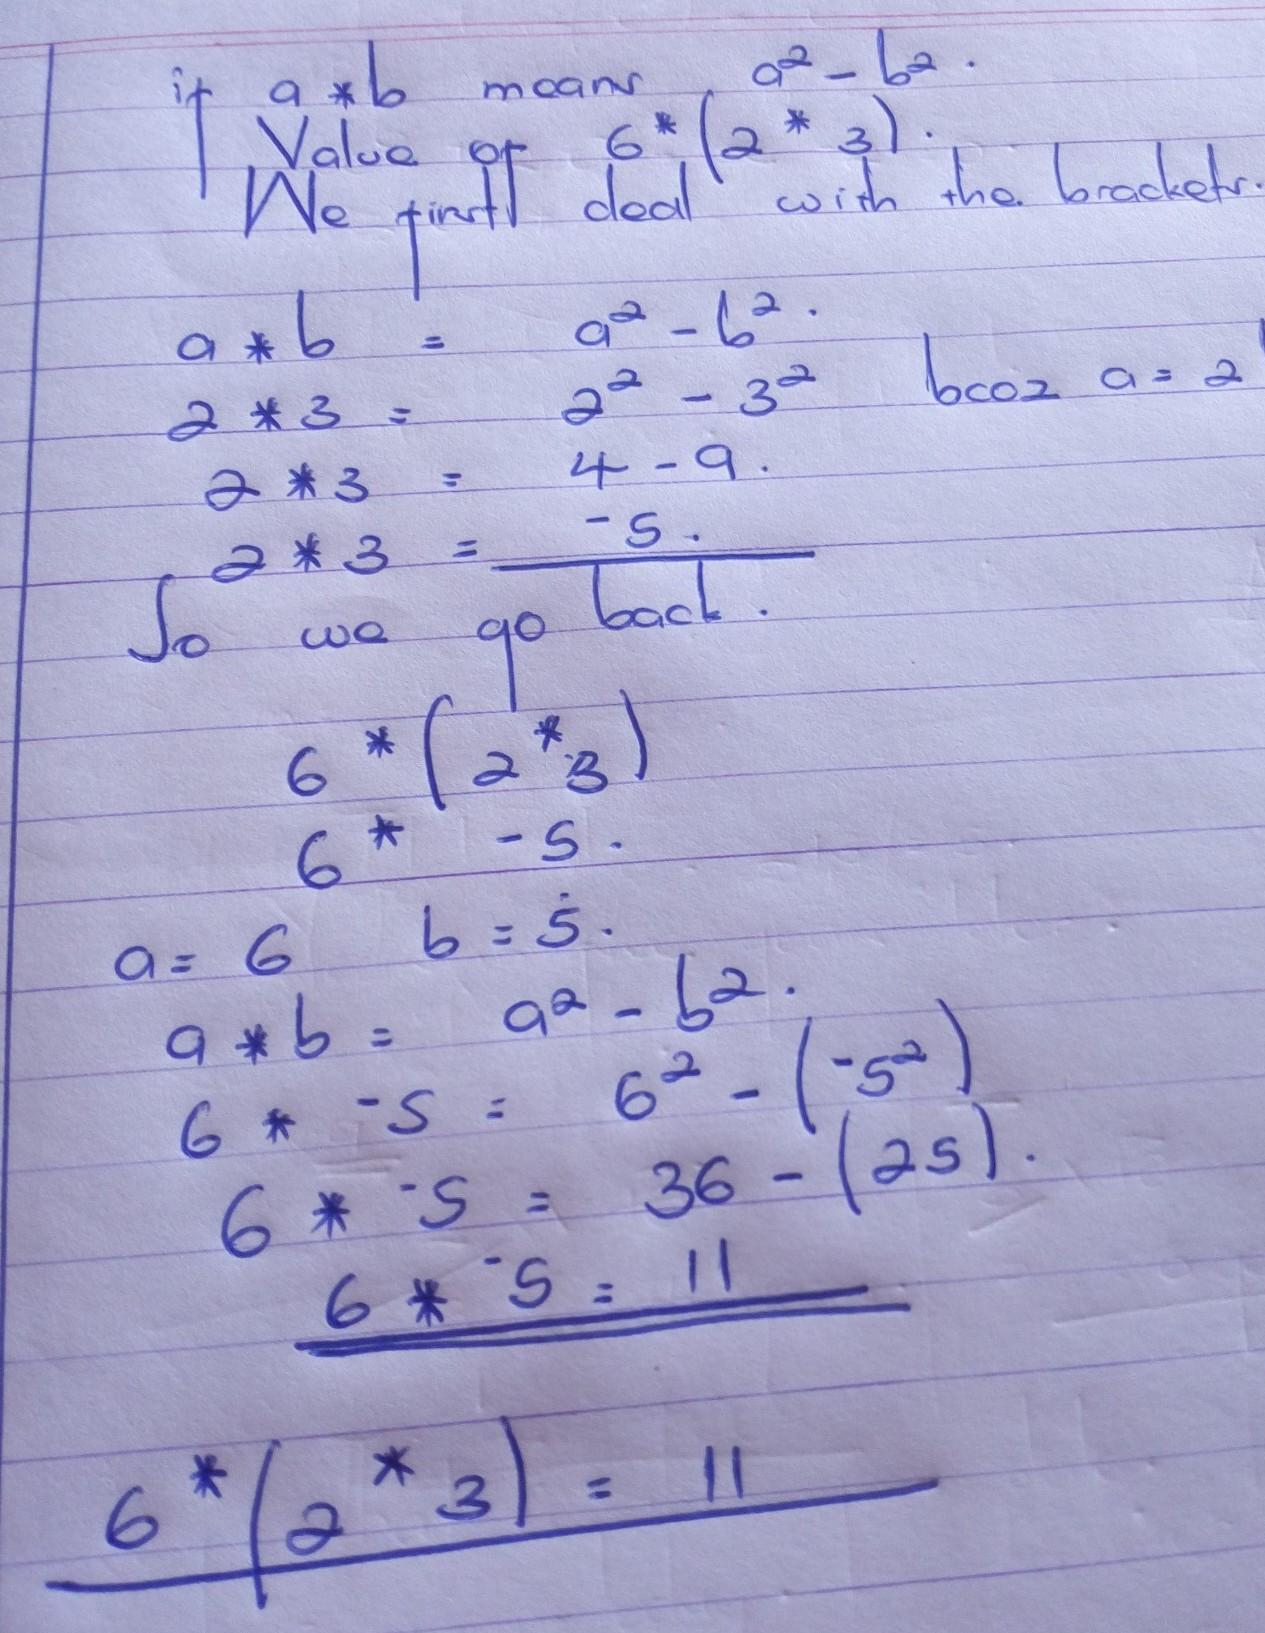 if a * b means a² - b².
Value of 6 * (2 * 3).
We first deal with the brackets.
a * b = a² - b².
2 * 3 = 2² - 3² bcoz a = 2
2 * 3 = 4 - 9.
2 * 3 = -5.
So we go back.
6 * (2 * 3)
6 * -5.
a = 6 b = 5.
a * b = a² - b².
6 * -5 = 6² - (-5²)
6 * -5 = 36 - (25).
6 * -5 = 11
6 * (2 * 3) = 11